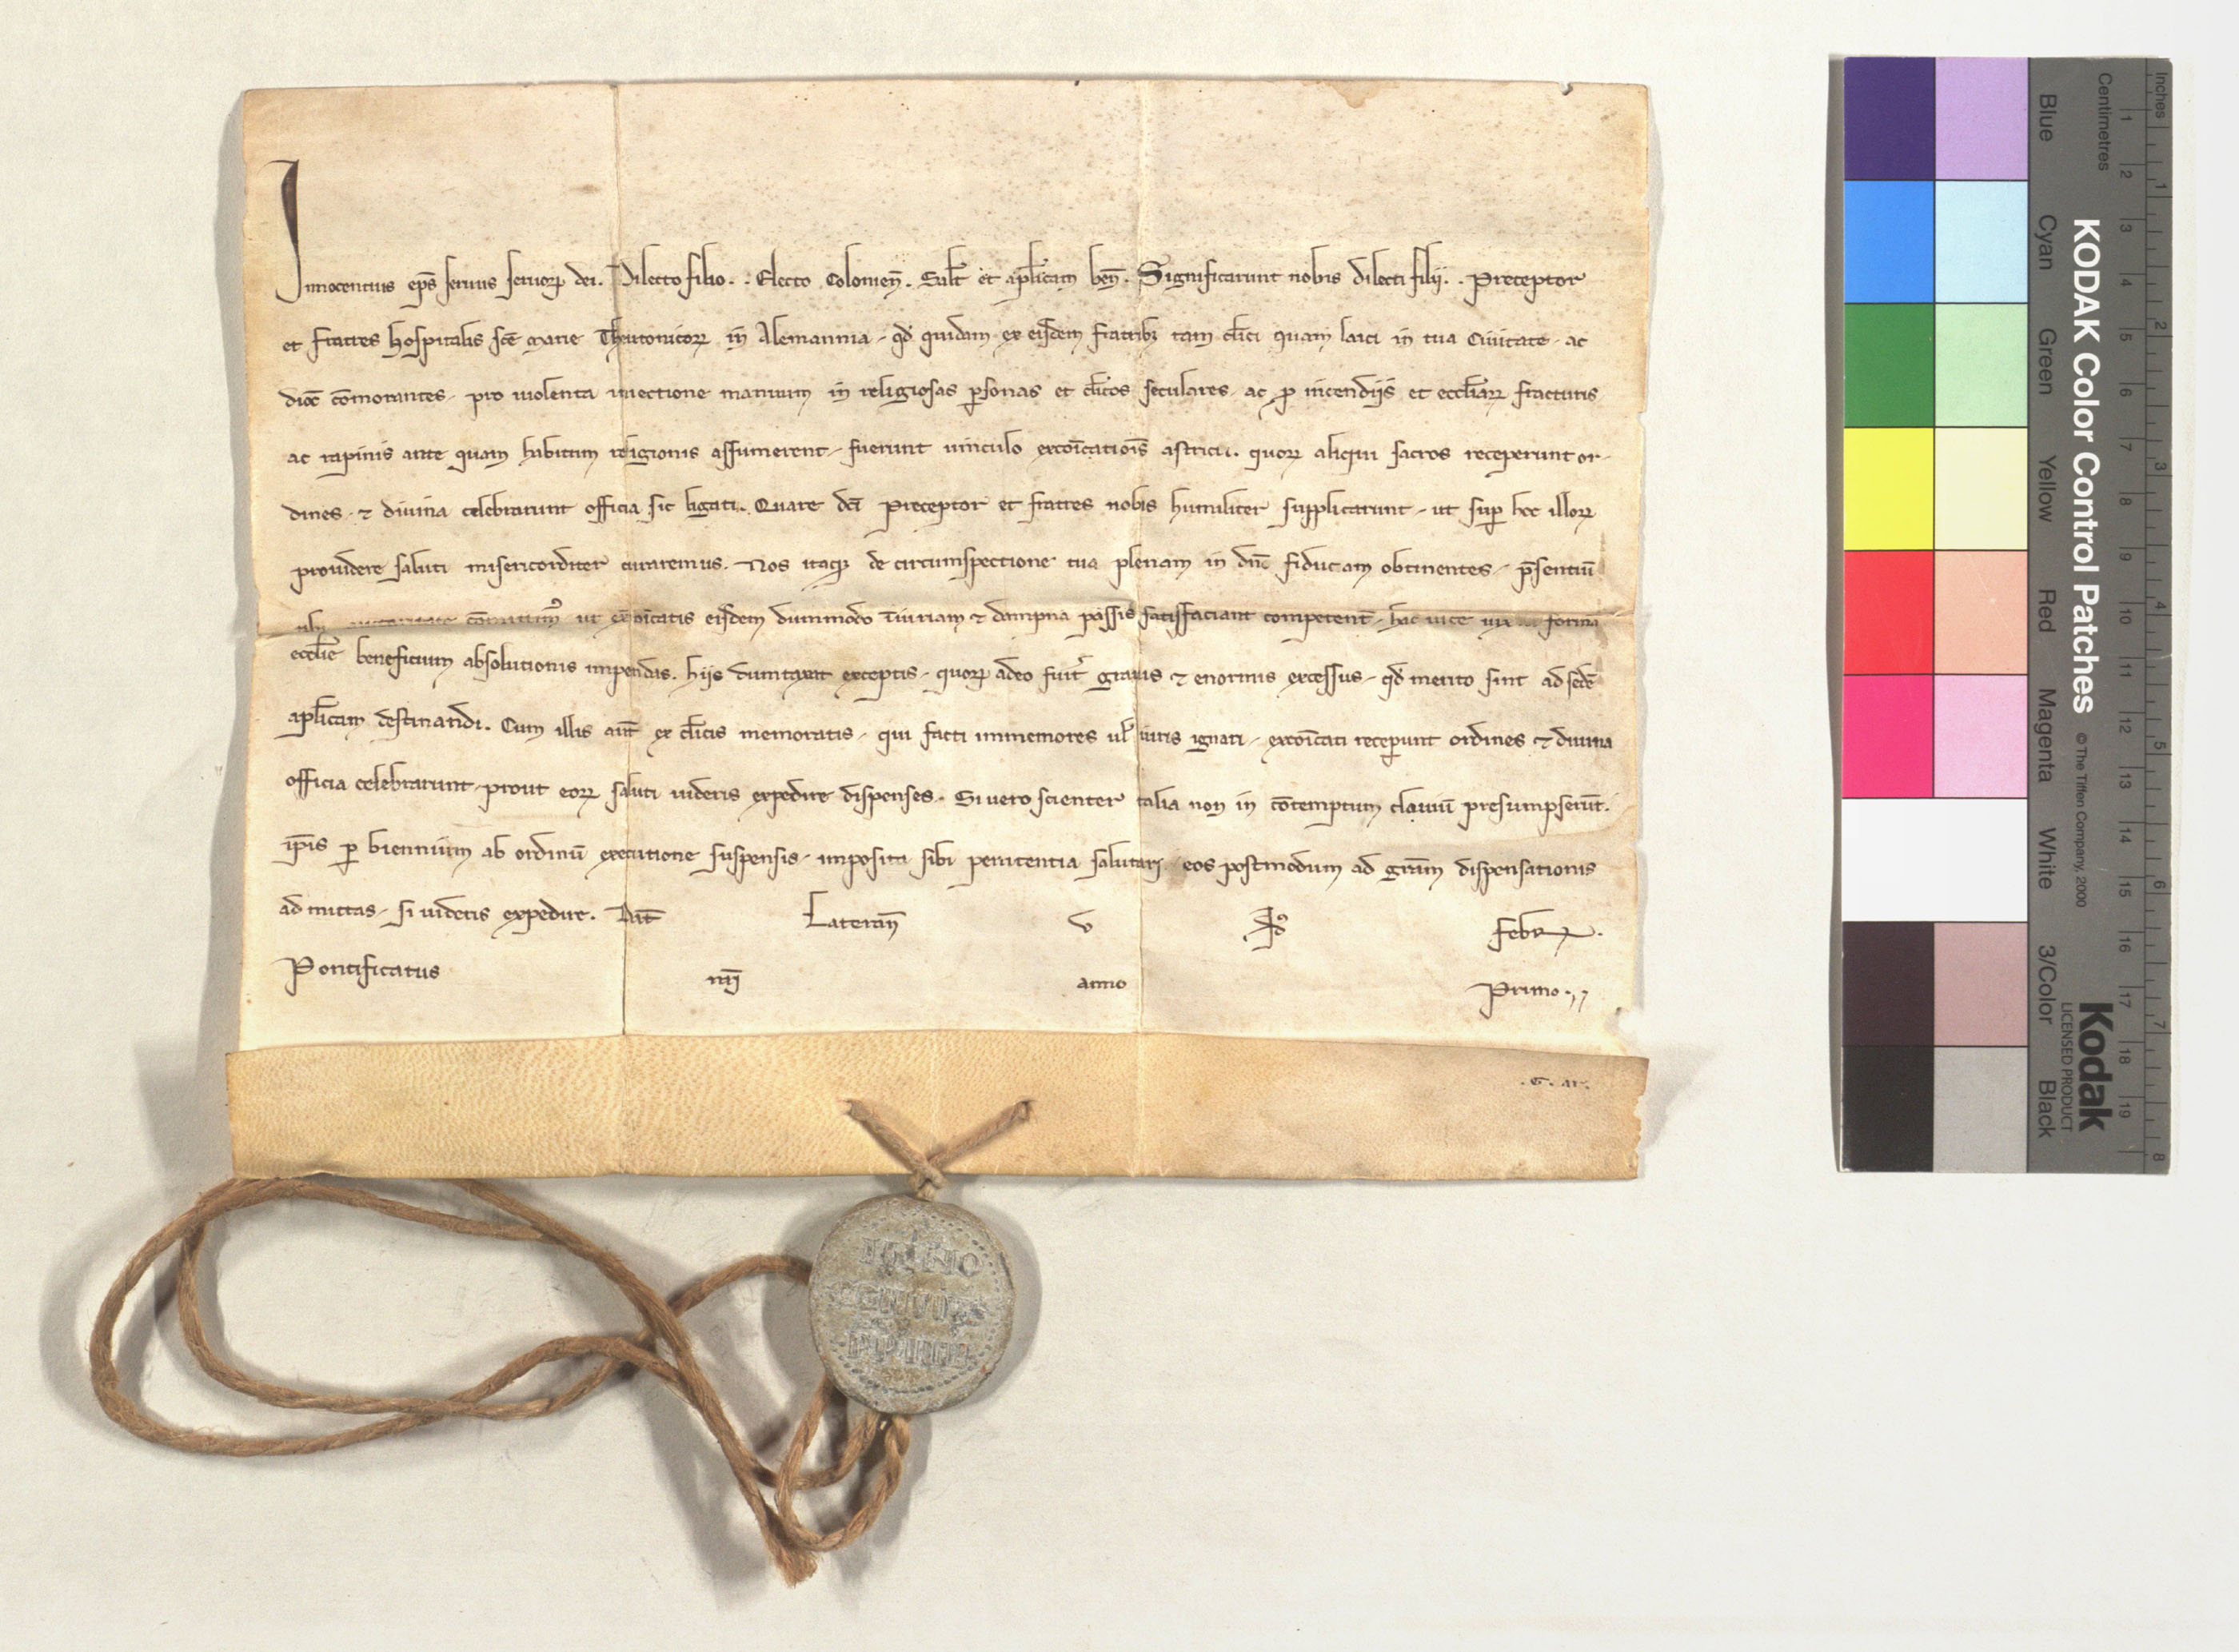 Innocentius ep̅s seruus seruoꝝ dei. Dilecto filio. . Electo Colonien̅. Salt̅ et ap̅licam ben̅. Significarunt nobis dilecti filij. . Preceptor
et fratres hospitalis sc̅e Marie Theutonicoꝝ in Alemannia, qd̕ quidam ex eisdem fratribꝫ tam cl̅ici quam laici in tua Ciuitate, ac
dioc̅ co̅morantes, pro uiolenta iniectione manuum in religiosas ꝑsonas et cl̅icos seculares, ac ꝓ incendijs et eccl̅iaꝝ fracturis
ac rapinis ante quam habitum religionis assumerent, fuerunt uinculo exco̅icatiois̅ astricti. quoꝝ aliqui sacros receperunt or-
dines, ⁊ diuina celebrarunt officia sic ligati. Quare dc̅i Preceptor et fratres nobis humiliter supplicarunt, ut suꝑ hoc illoꝝ
prouidere saluti misericorditer curaremus. Nos itaqꝫ de circumspectione tua plenam in dn̅o fiduciam obtinentes, p̅sentiu̅
tibi auctoritate co̅mittimꝰ ut exco̅icatis eisdem dummodo iniuriam ⁊ dampna passis satisfaciant competent̅, hac uice iuxta formam
eccl̅ie beneficium absolutionis impendas. hijs dumtaxat exceptis, quoꝝ adeo fuit̕ grauis ⁊ enormis excessus, qd̕ merito sint ad sede̅
ap̅licam destinandi. Cum illis aut̅ ex cl̅icis memoratis, qui facti immemores ul̕ iuris ignari, exco̅icati receꝑunt ordines ⁊ diuina
officia celebrarunt, prout eoꝝ saluti uideris expedire dispenses. Si uero scienter talia non in co̅temptum clauiu̅ presumpseru̅t.
ip̅is ꝑ biennium ab ordinu̅ executione suspensis, imposita sibi penitentia salutari, eos postmodum ad gr̅am dispensationis
admittas, si uideris expedire. Dat̅ Lateran̅ v Id̕ Febrꝝ.
Pontificatus nr̅i anno Primo.
.G. ar.
INNO
CENTIVS
PP IIII
KODAK Color Control Patches
© The Tiffen Company, 2000
Kodak
LICENSED PRODUCT
Inches
Centimetres
1 2 3 4 5 6 7 8
1 2 3 4 5 6 7 8 9 10 11 12 13 14 15 16 17 18 19
Blue
Cyan
Green
Yellow
Red
Magenta
White
3/Color
Black